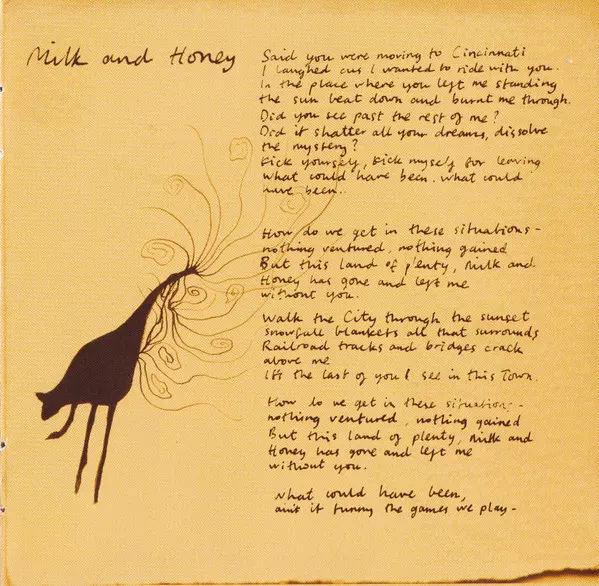 Milk and Honey
Said you were moving to Cincinnati
I laughed cus I wanted to ride with you.
In the place where you left me standing
the sun beat down and burnt me through.
Did you see past the rest of me?
Did it shatter all your dreams, dissolve
the mystery?
Kick yourself, kick myself for leaving
what could have been. what could
have been..
How do we get in these situations -
nothing ventured, nothing gained
But this land of plenty, Milk and
Honey has gone and left me
without you.
Walk the City through the sunset
snowfall blankets all that surrounds
Railroad tracks and bridges crack
above me
It's the last of you I see in this Town.
How do we get in these situations -
nothing ventured, nothing gained
But this land of plenty, Milk and
Honey has gone and left me
without you.
What could have been,
ain't it funny the games we play -